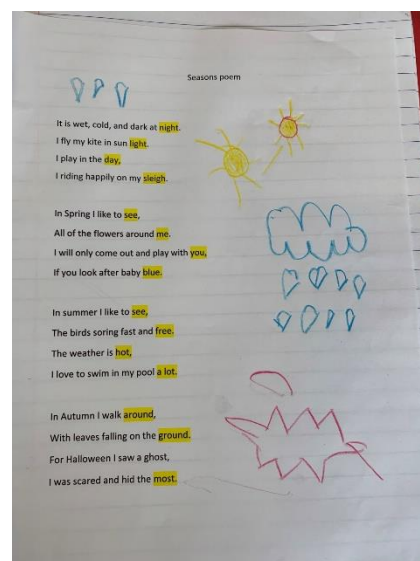 Seasons poem
It is wet, cold, and dark at night.
I fly my kite in sun light.
I play in the day,
I riding happily on my sleigh.
In Spring I like to see,
All of the flowers around me.
I will only come out and play with you,
If you look after baby blue.
In summer I like to see,
The birds soring fast and free.
The weather is hot,
I love to swim in my pool a lot.
In Autumn I walk around,
With leaves falling on the ground.
For Halloween I saw a ghost,
I was scared and hid the most.